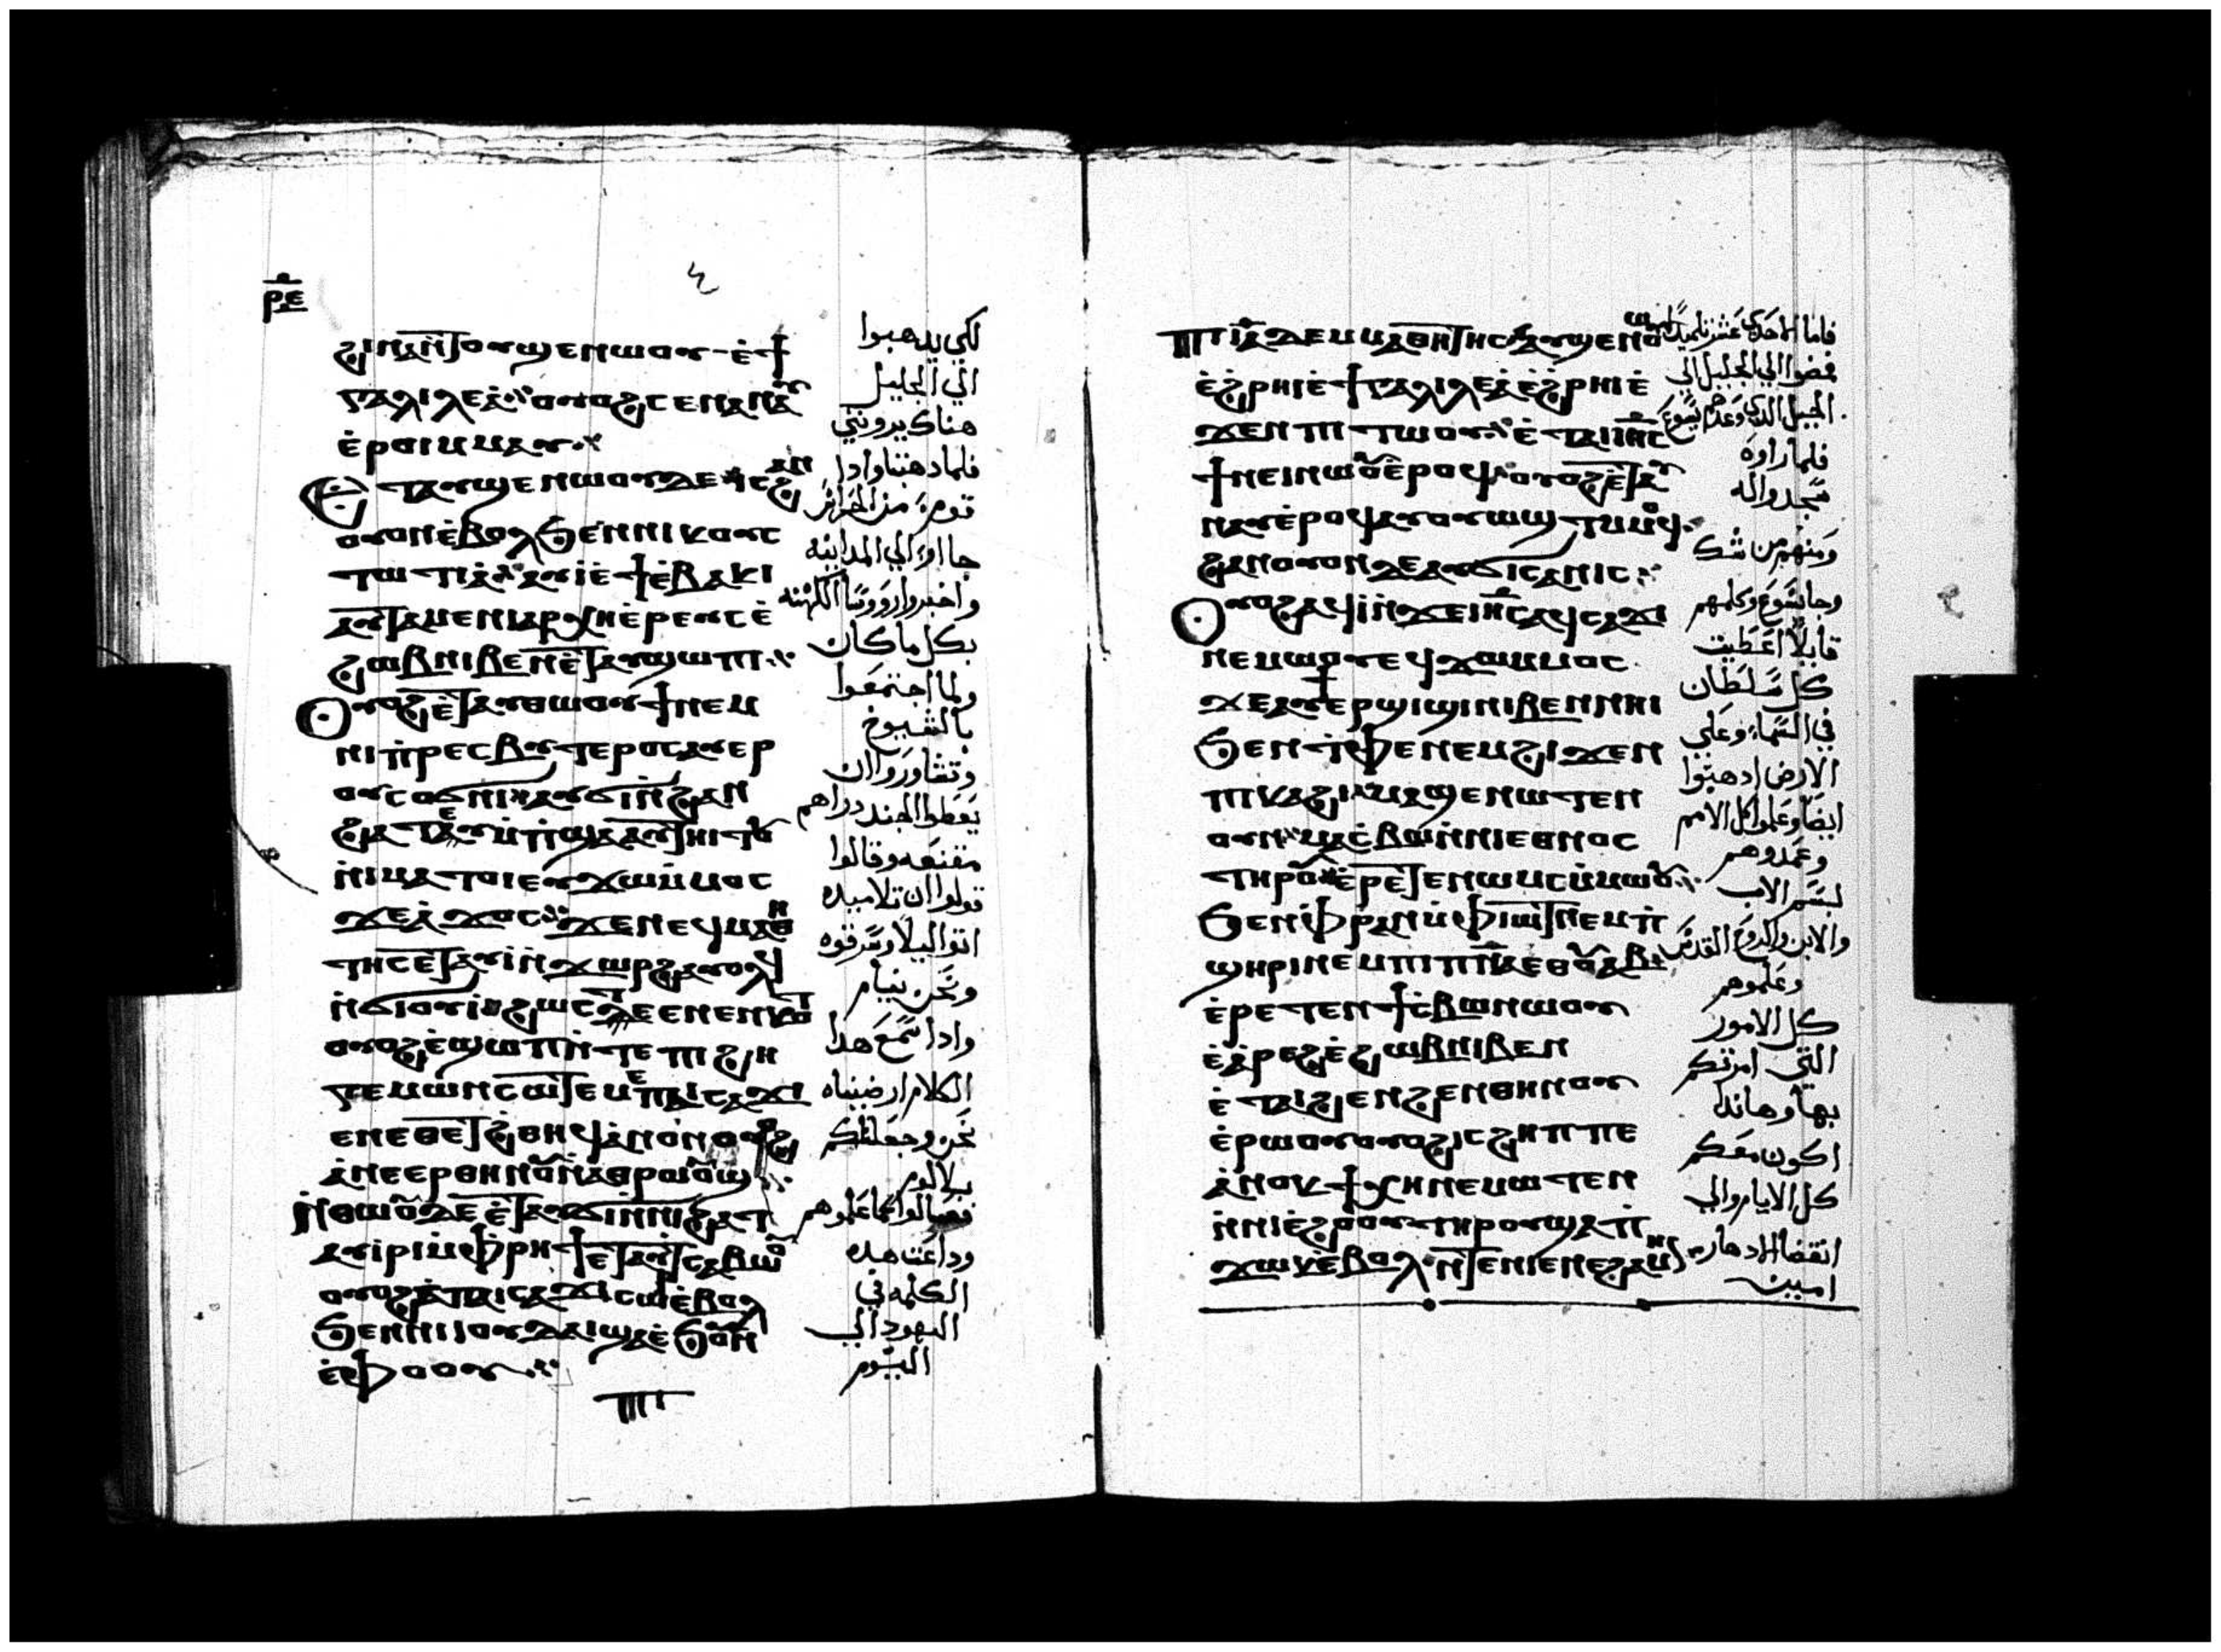 ⲣⲉ
ϩⲓⲛⲁⲛ̀ⲧⲟⲩϣⲉⲛⲱⲟⲩ ⲉ̀ϯ
ⲅⲁⲗⲓⲗⲉⲁ̀ ⲟⲩⲟϩ ⲥⲉⲛⲁⲛⲁⲩ
ⲉ̀ⲣⲟⲓ ⲙⲙⲁⲩ
ⲉⲧⲁⲩϣⲉⲛⲱⲟⲩ ⲇⲉ ⲓⲥ ϩⲁⲛ
ⲟⲩⲟⲛ ⲉ̀ⲃⲟⲗ ϧⲉⲛ ⲛⲓⲕⲟⲩⲥ
ⲧⲱⲧⲓⲁ̀ ⲁⲩⲓ̀ ⲉ̀ϯⲃⲁⲕⲓ
ⲁⲩⲧⲁⲙⲉ ⲛⲓⲁⲣⲭⲏⲉ̀ⲣⲉⲩⲥ ⲉ̀
ϩⲱⲃ ⲛⲓⲃⲉⲛ ⲉ̀ⲧⲁⲩϣⲱⲡⲓ
ⲟⲩⲟϩ ⲉ̀ⲧⲁⲩⲑⲱⲟⲩϯ ⲛⲉⲙ
ⲛⲓⲡ̀ⲣⲉⲥⲃⲩⲧⲉⲣⲟⲥ ⲁⲩⲉⲣ
ⲟⲩⲥⲟϭⲛⲓ ⲁⲩϭⲓ ⲛ̀ϩⲁⲛ
ϩⲁⲧ ⲉⲩⲙ̀ⲡϣⲁ ⲁⲩⲧⲏⲓⲧⲟⲩ
ⲛ̀ⲛⲓⲙⲁⲧⲟⲓ ⲉⲩϫⲱ ⲙ̀ⲙⲟⲥ
ϫⲉ ⲁ̀ϫⲟⲥ ϫⲉ ⲛⲉϥⲙⲁⲑⲏ
ⲧⲏⲥ ⲉ̀ⲧⲁⲩⲓ̀ ⲛ̀ϫⲱⲣϩ ⲁⲩⲟⲗϥ
ⲛ̀ϭⲓⲟⲩⲓ̀ ϩⲱⲥ ⲇⲉ ⲉⲛⲉⲛⲕⲟⲧ
ⲟⲩⲟϩ ⲉ̀ϣⲱⲡ ⲛ̀ⲧⲉ ⲡⲓϩⲏ
ⲅⲉⲙⲱⲛ ⲥⲱⲧⲉⲙ ⲉⲡⲁⲓⲥⲁϫⲓ
ⲉⲛⲉⲑⲉⲧ ϩ̀ⲑⲏϥ ⲁ̀ⲛⲟⲛ ⲟⲩⲟϩ
ⲁ̀ⲛⲉⲉⲣⲑⲏⲛⲟⲩ ⲛ̀ⲁⲑⲣⲱⲟⲩϣ
ⲛ̀ⲑⲱⲟⲩ ⲇⲉ ⲉ̀ⲧⲁⲩϭⲓ ⲛ̀ⲛⲓϩⲁⲧ
ⲁⲩⲓ̀ⲣⲓ ⲙ̀ⲫⲣⲏϯ ⲉⲧⲁⲩⲧⲥⲁⲃⲱⲟⲩ
ⲟⲩⲟϩ ⲁ̀ ⲡⲁⲓⲥⲁϫⲓ ⲥⲱⲣ ⲉ̀ⲃⲟⲗ
ϧⲉⲛ ⲛⲓⲓⲟⲩⲇⲁⲓ ϣⲁ ⲉ̀ϧⲟⲩⲛ
ⲉ̀ⲫⲟⲟⲩ
ⲡⲓ
لكي يدهبوا
الي الجليل
هناك يرونني
فلما دهبنا وادا
قوم من الحراس
جااوا الي المدينه
واخبروا رووسا الكهنه
بكل ما كان
ولما اجتمعوا
بالشيوخ
وتشاوروا ان
يعطوا الجند دراهم
مقنعه وقالوا
قولوا ان تلاميده
اتوا ليلا وسرقوه
ونحن نيام
وادا سمع هدا
الكلام ارضيناه
نحن وجعلناكم
بلا لوم
وداعت هده
الكلمه في
اليهود الي
اليوم
ⲡⲓⲓⲁ̅ ⲇⲉ ⲙⲙⲁⲑⲏⲧⲏⲥ ⲁⲩϣⲉⲛⲱⲟⲩ
ⲉ̀ϩⲣⲏⲓ ⲉ̀ϯⲅⲁⲗⲓⲗⲉⲁ̀ ⲉ̀ϩⲣⲏⲓ ⲉ̀
ϫⲉⲛ ⲡⲓⲧⲱⲟⲩ ⲉ̀ⲧⲁ ⲓⲏⲥ
ϯⲙⲉⲓⲛ ⲱⲟⲩ ⲉ̀ⲣⲟϥ ⲟⲩⲟϩ ⲉ̀ⲧⲁⲩ
ⲛⲁⲩ ⲉ̀ⲣⲟϥ ⲁⲩⲟⲩⲱϣⲧ ⲙ̀ⲙⲟϥ
ϩⲁⲛⲟⲩⲟⲛ ⲇⲉ ⲁⲩϭⲓⲥⲁⲛⲓⲥ
ⲟⲩⲟϩ ⲁϥⲓ̀ ⲛ̀ϫⲉ ⲓⲏⲥ ⲁϥⲥⲁϫⲓ
ⲛⲉⲙⲱⲟⲩ ⲉϥϫⲱ ⲙⲙⲟⲥ
ϫⲉ ⲁⲩϯ ⲉⲣϣⲓϣⲓ ⲛⲓⲃⲉⲛ ⲛⲏⲓ
ϧⲉⲛ ⲧ̀ⲫⲉ ⲛⲉⲙ ϩⲓϫⲉⲛ
ⲡⲓⲕⲁϩⲓ ⲙⲁϣⲉⲛⲱⲧⲉⲛ
ⲟⲩⲛ ⲙⲁⲥ̀ⲃⲱ ⲛ̀ⲛⲓⲉⲑⲛⲟⲥ
ⲧⲏⲣⲟⲩ ⲉ̀ⲣⲉⲧⲉⲛⲱⲙⲥ ⲙ̀ⲙⲱⲟⲩ
ϧⲉⲛ ⲫ̀ⲣⲁⲛ ⲙ̀ⲫⲓⲱⲧ ⲛⲉⲙ ⲡ̀
ϣⲏⲣⲓ ⲛⲉⲙ ⲡⲓⲡⲛⲁ ⲉⲑⲟⲩⲁⲃ
ⲉ̀ⲣⲉⲧⲉⲛϯⲥ̀ⲃⲱ ⲛⲱⲟⲩ
ⲉ̀ⲁ̀ⲣⲉϩ ⲉ̀ϩⲱⲃ ⲛⲓⲃⲉⲛ
ⲉ̀ⲧⲁⲓϩⲉⲛϩⲉⲛ ⲑⲏⲛⲟⲩ
ⲉ̀ⲣⲱⲟⲩ ⲟⲩⲟϩ ⲓⲥ ϩⲏⲡⲡⲉ
ⲁ̀ⲛⲟⲕ ϯⲭⲏ ⲛⲉⲙⲱⲧⲉⲛ
ⲛ̀ⲛⲓⲉ̀ϩⲟⲟⲩ ⲧⲏⲣⲟⲩ ϣⲁ ⲡ̀
ϫⲱⲕ ⲉ̀ⲃⲟⲗ ⲛ̀ⲧⲉ ⲛⲓⲉⲛⲉϩ ⲁⲙⲏⲛ
فاما الاحدي عشر تلميدا
فمضوا الي الجليل الي
الجبل الدي وعدهم يسوع
فلما راوه
سجدوا له
ومنهم من شك
وجا يسوع وكلمهم
قايلا اعطيت
كل سلطان
في السما وعلي
الارض ادهبوا
ايضا وعلموا كل الامم
وعمدوهم
بسم الاب
والابن والروح القدس
وعلموهم
كل الامور
التي امرتكم
بها وهاندا
اكون معكم
كل الايام والي
انقضا الادهار
امين